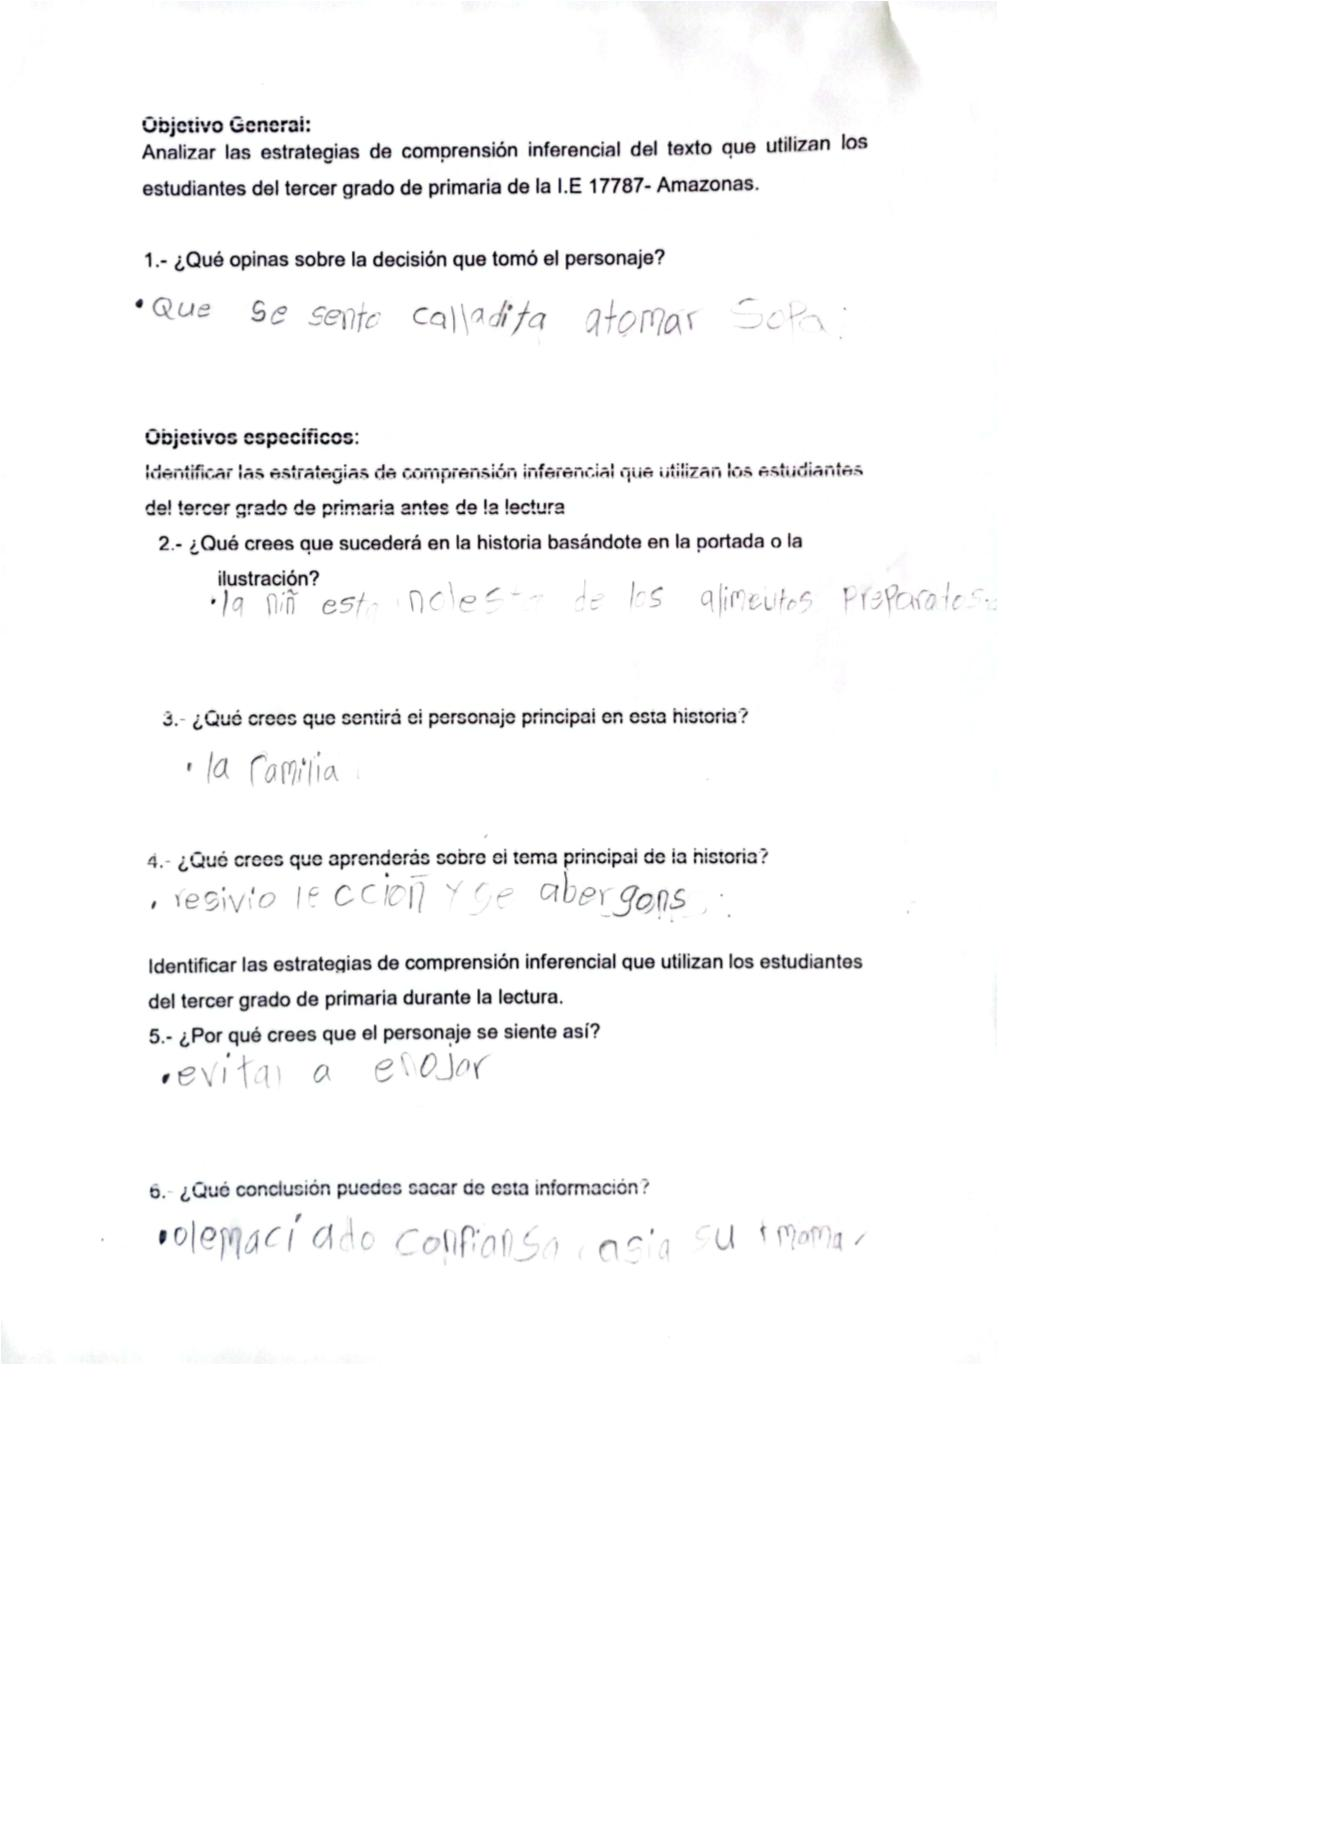 Objetivo General:
Analizar las estrategias de comprensión inferencial del texto que utilizan los
estudiantes del tercer grado de primaria de la I.E 17787- Amazonas.
1.- ¿Qué opinas sobre la decisión que tomó el personaje?
• Que se sento calladita atomar Sopa.
Objetivos específicos:
Identificar las estrategias de comprensión inferencial que utilizan los estudiantes
del tercer grado de primaria antes de la lectura
2.- ¿Qué crees que sucederá en la historia basándote en la portada o la
ilustración?
• la niñ esta de los alimeutos preparatos.
3.- ¿Qué crees que sentirá el personaje principal en esta historia?
• la familia
4.- ¿Qué crees que aprenderás sobre el tema principal de la historia?
• resivio lección y se abergons
Identificar las estrategias de comprensión inferencial que utilizan los estudiantes
del tercer grado de primaria durante la lectura.
5.- ¿Por qué crees que el personaje se siente así?
• evitar a enojar
6.- ¿Qué conclusión puedes sacar de esta información?
• demacíado confiansa asia su mama